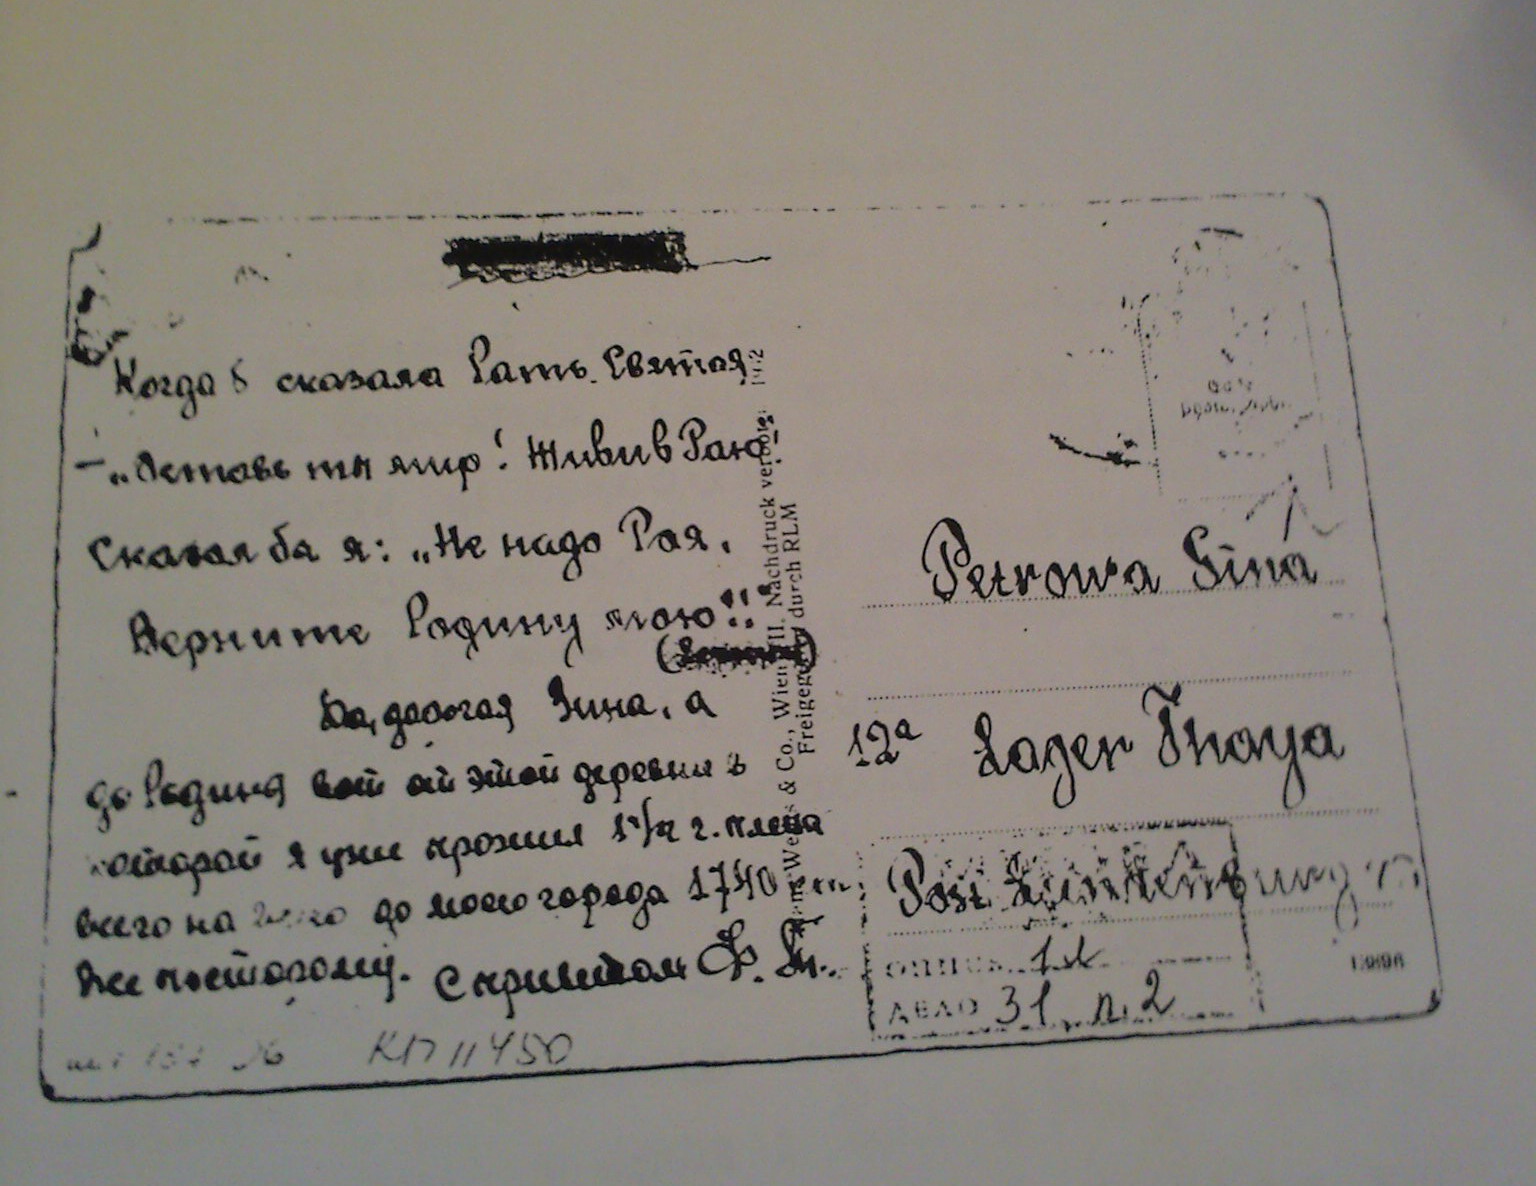 Когда б сказала Рать Святая
— „Оставь ты мир! Живи в Раю"
Сказал ба я: „Не надо Рая,
Верните Родину мою!!"
Да, дорогая Зина, а
до Родины вот от этой деревни в
которой я уже прожил 1 1/2 г. плена
всего на до моего города 1740 км.
Все постарому. С приветом Ф.
КП 11450
Wien VII. Nachdruck verboten
Freigegeben durch RLM
Petrowa Sina
12a Lager Thaya
Post
ОПИСЬ
ДЕЛО 31 л. 2